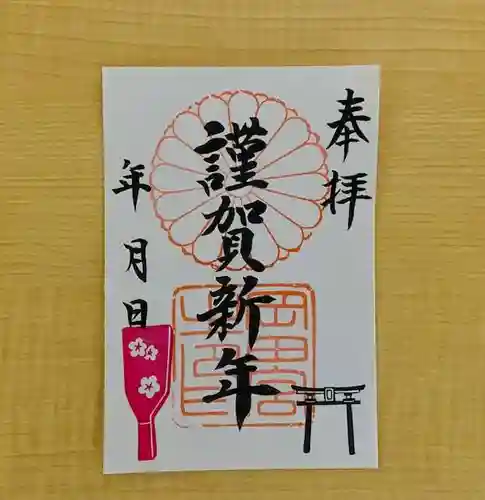 奉拝
謹賀新年
年月日